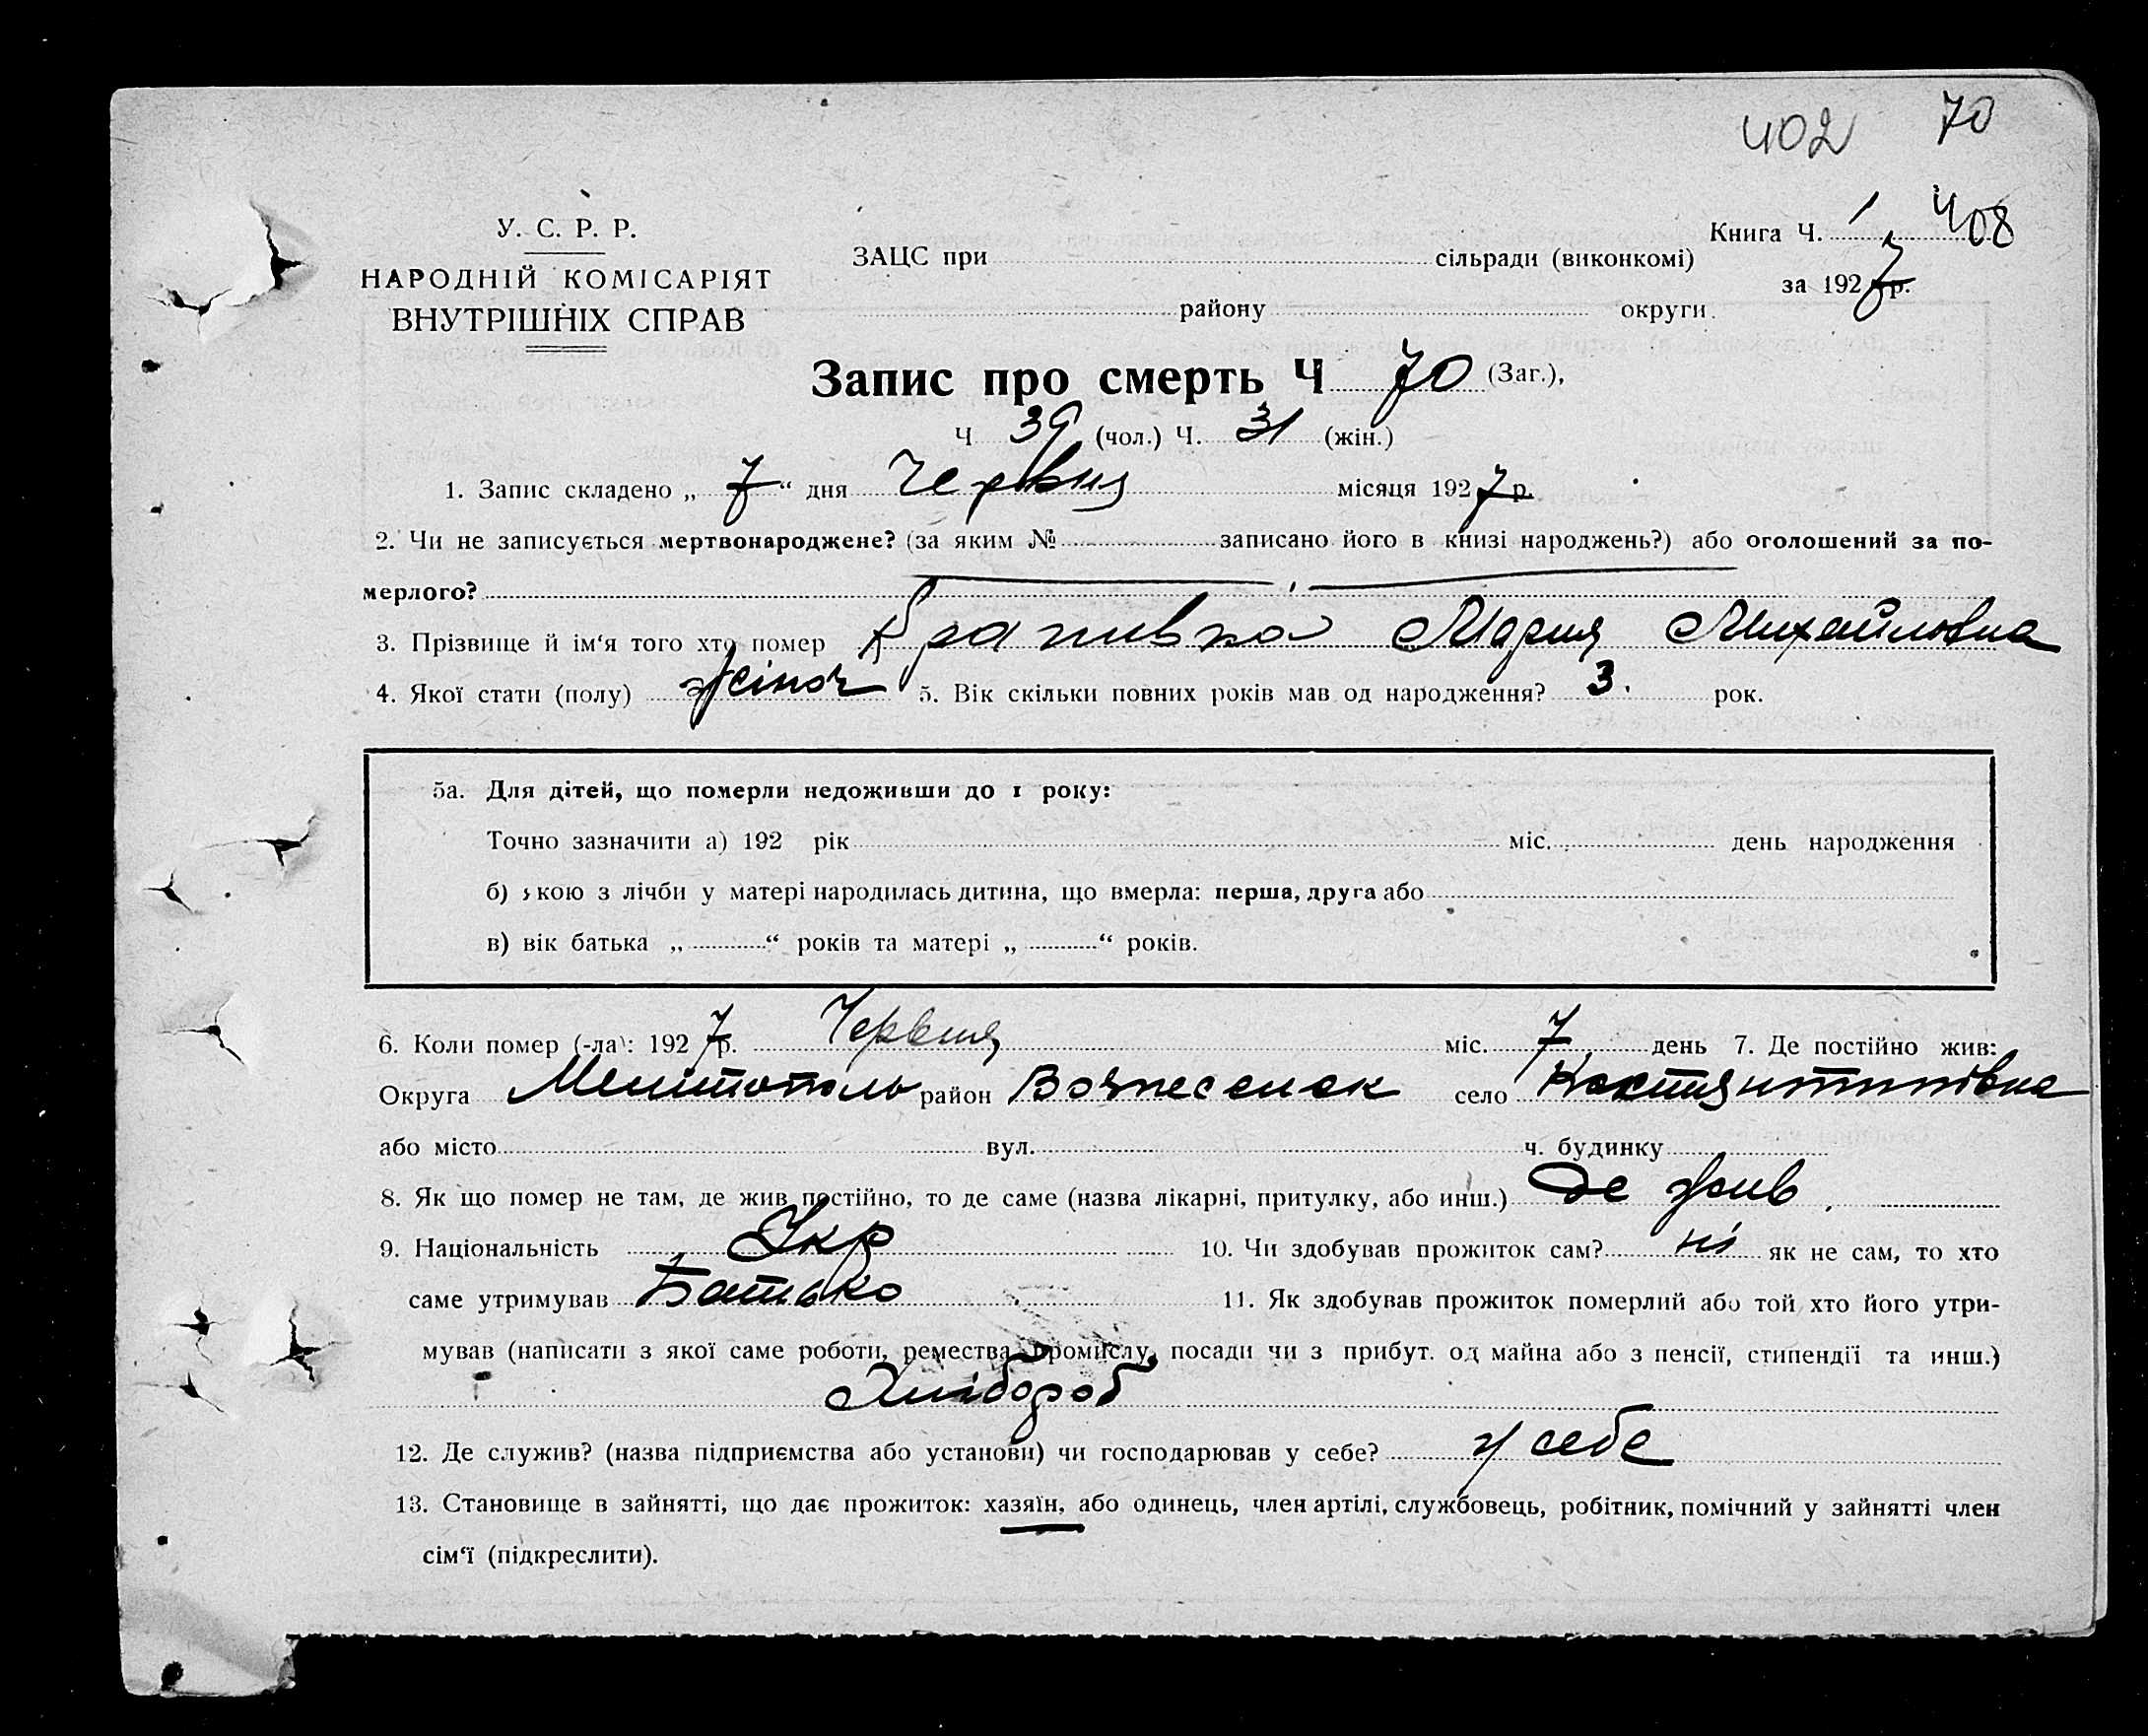 402 70
У. С. Р. Р.
НАРОДНІЙ КОМІСАРІЯТ
ВНУТРІШНІХ СПРАВ
Книга Ч. 1 408
ЗАЦС при сільради (виконкомі)
за 1927 р.
району округи.
Запис про смерть Ч 70 (Заг.),
Ч 39 (чол.) Ч. 31 (жін.)
1. Запис складено „ 7 “ дня Червня місяця 1927 р.
2. Чи не записується мертвонароджене? (за яким № записано його в книзі народжень?) або оголошений за по-
мерлого?
3. Прізвище й ім‘я того хто помер Крапивка Мария Михайловна
4. Якої стати (полу) жіноч 5. Вік скільки повних років мав од народження? 3. рок.
5а. Для дітей, що померли недоживши до 1 року:
Точно зазначити а) 192 рік міс. день народження
б) якою з лічби у матері народилась дитина, що вмерла: перша, друга або
в) вік батька „ “ років та матері „ “ років.
6. Коли помер (-ла): 1927 р. Червня міс. 7 день 7. Де постійно жив:
Округа Мелітополь район Вознесенск село Костянтинівка
або місто вул. ч. будинку
8. Як що помер не там, де жив постійно, то де саме (назва лікарні, притулку, або инш.) Де жив
9. Національність Укр 10. Чи здобував прожиток сам? ні як не сам, то хто
саме утримував Батько 11. Як здобував прожиток померлий або той хто його утри-
мував (написати з якої саме роботи, ремества, промислу, посади чи з прибут. од майна або з пенсії, стипендії та инш.)
Хлібороб
12. Де служив? (назва підприємства або установи) чи господарював у себе? у себе
13. Становище в зайнятті, що дає прожиток: хазяїн, або одинець, член артілі, службовець, робітник, помічний у зайнятті член
сім‘ї (підкреслити).